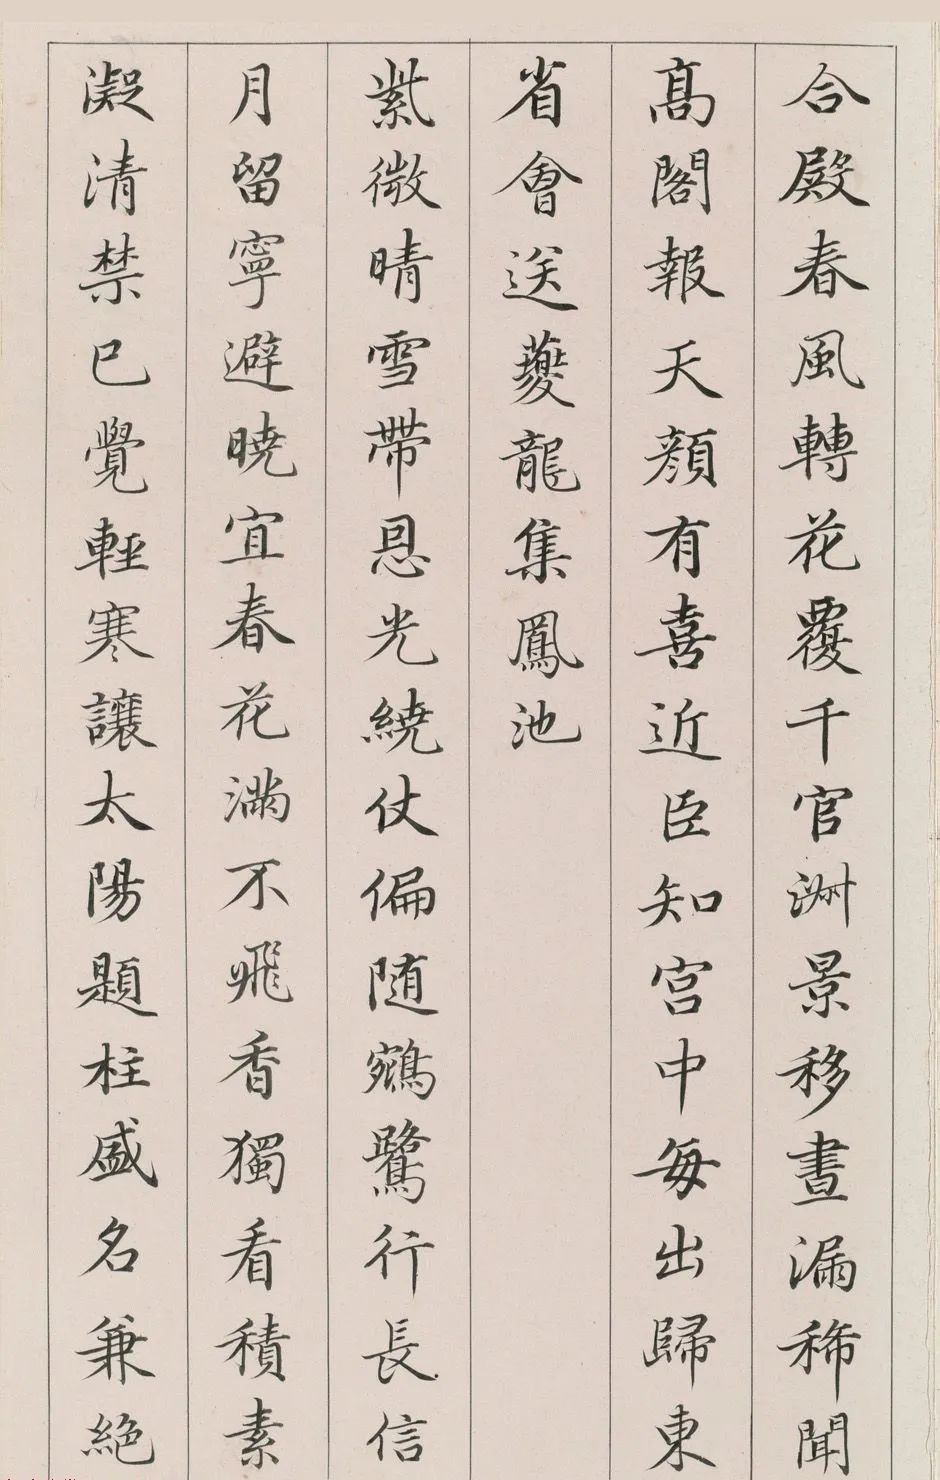 合殿春風轉花覆千官淑景移晝漏稀聞
高閣報天顏有喜近臣知宮中每出歸東
省會送夔龍集鳳池
紫微晴雪帶恩光繞仗偏随鵷鷺行長信
月留寧避曉宜春花滿不飛香獨看積素
凝清禁已覺輕寒讓太陽題柱盛名兼絕